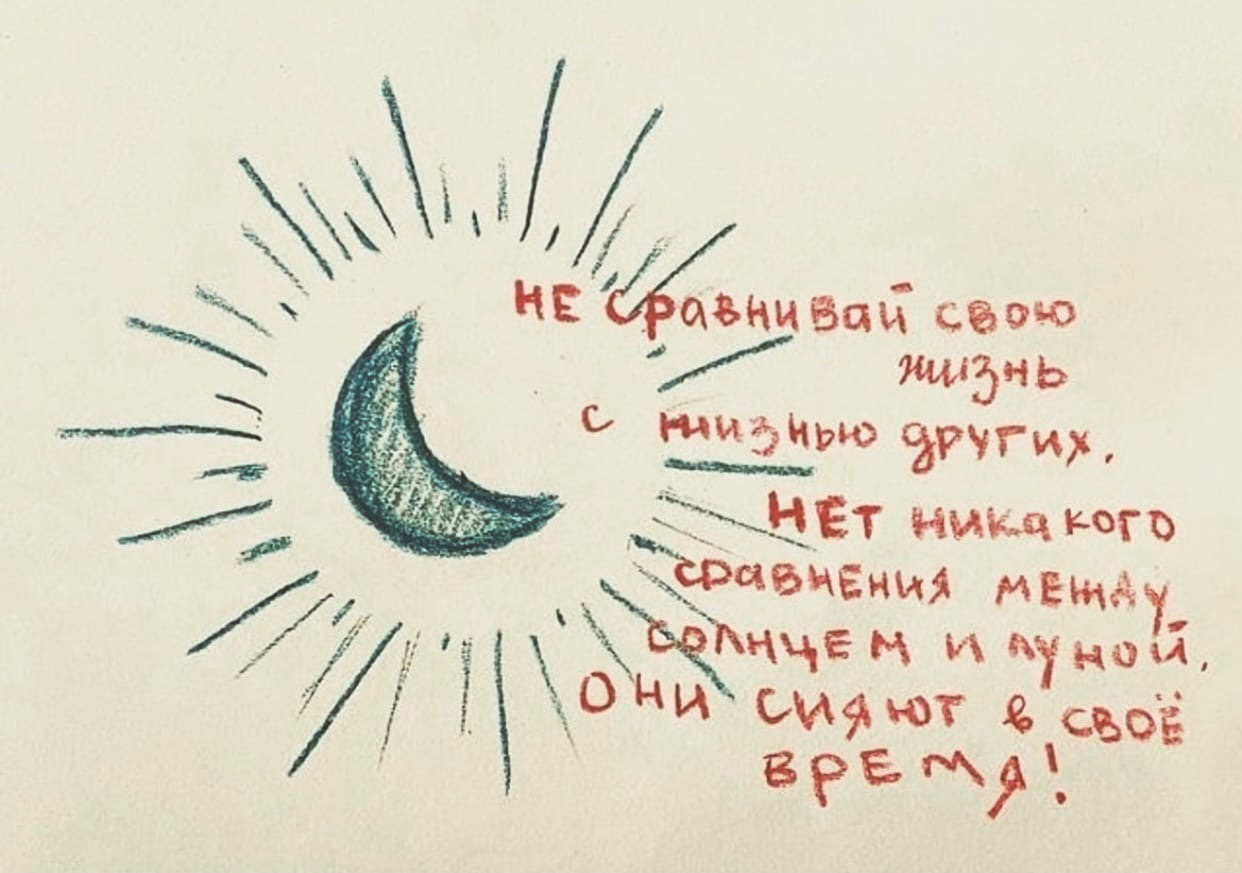 НЕ сравнивай свою
жизнь
с жизнью других.
НЕТ никакого
сравнения между
солнцем и луной.
Они сияют в своё
время!